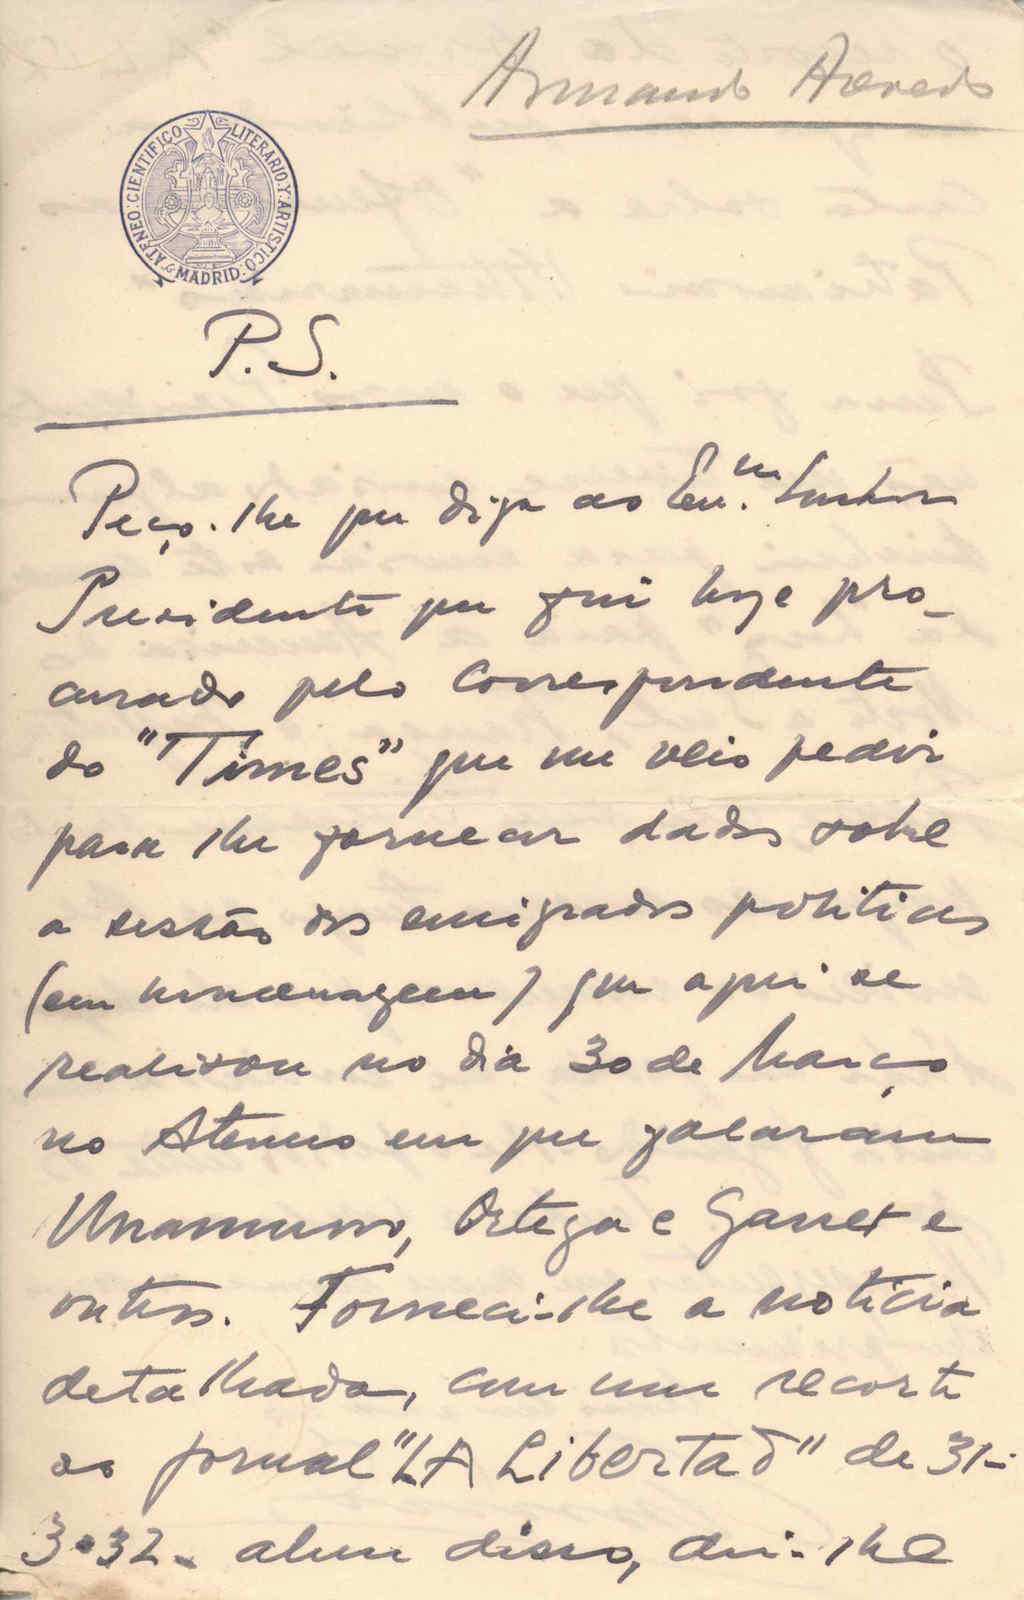 Armando
ATENEO: CIENTIFICO LITERARIO Y ARTISTICO
MADRID
P.S.
Peço-lhe que diga ao Exm.º Senhor
Presidente que fui hoje pro-
curado pelo Correspondente
do "Times" que me veio pedir
para lhe fornecer dados sobre
a sessão dos emigrados politicos
(em homenagem) que aqui se
realisou no dia 30 de Março
no Ateneo em que falaram
Unamuno, Ortega e Gasset e
outros. Forneci-lhe a noticia
detalhada, com um recorte
do jornal "LA LibertaD" de 31-
3-32. alem disso, dei-lhe